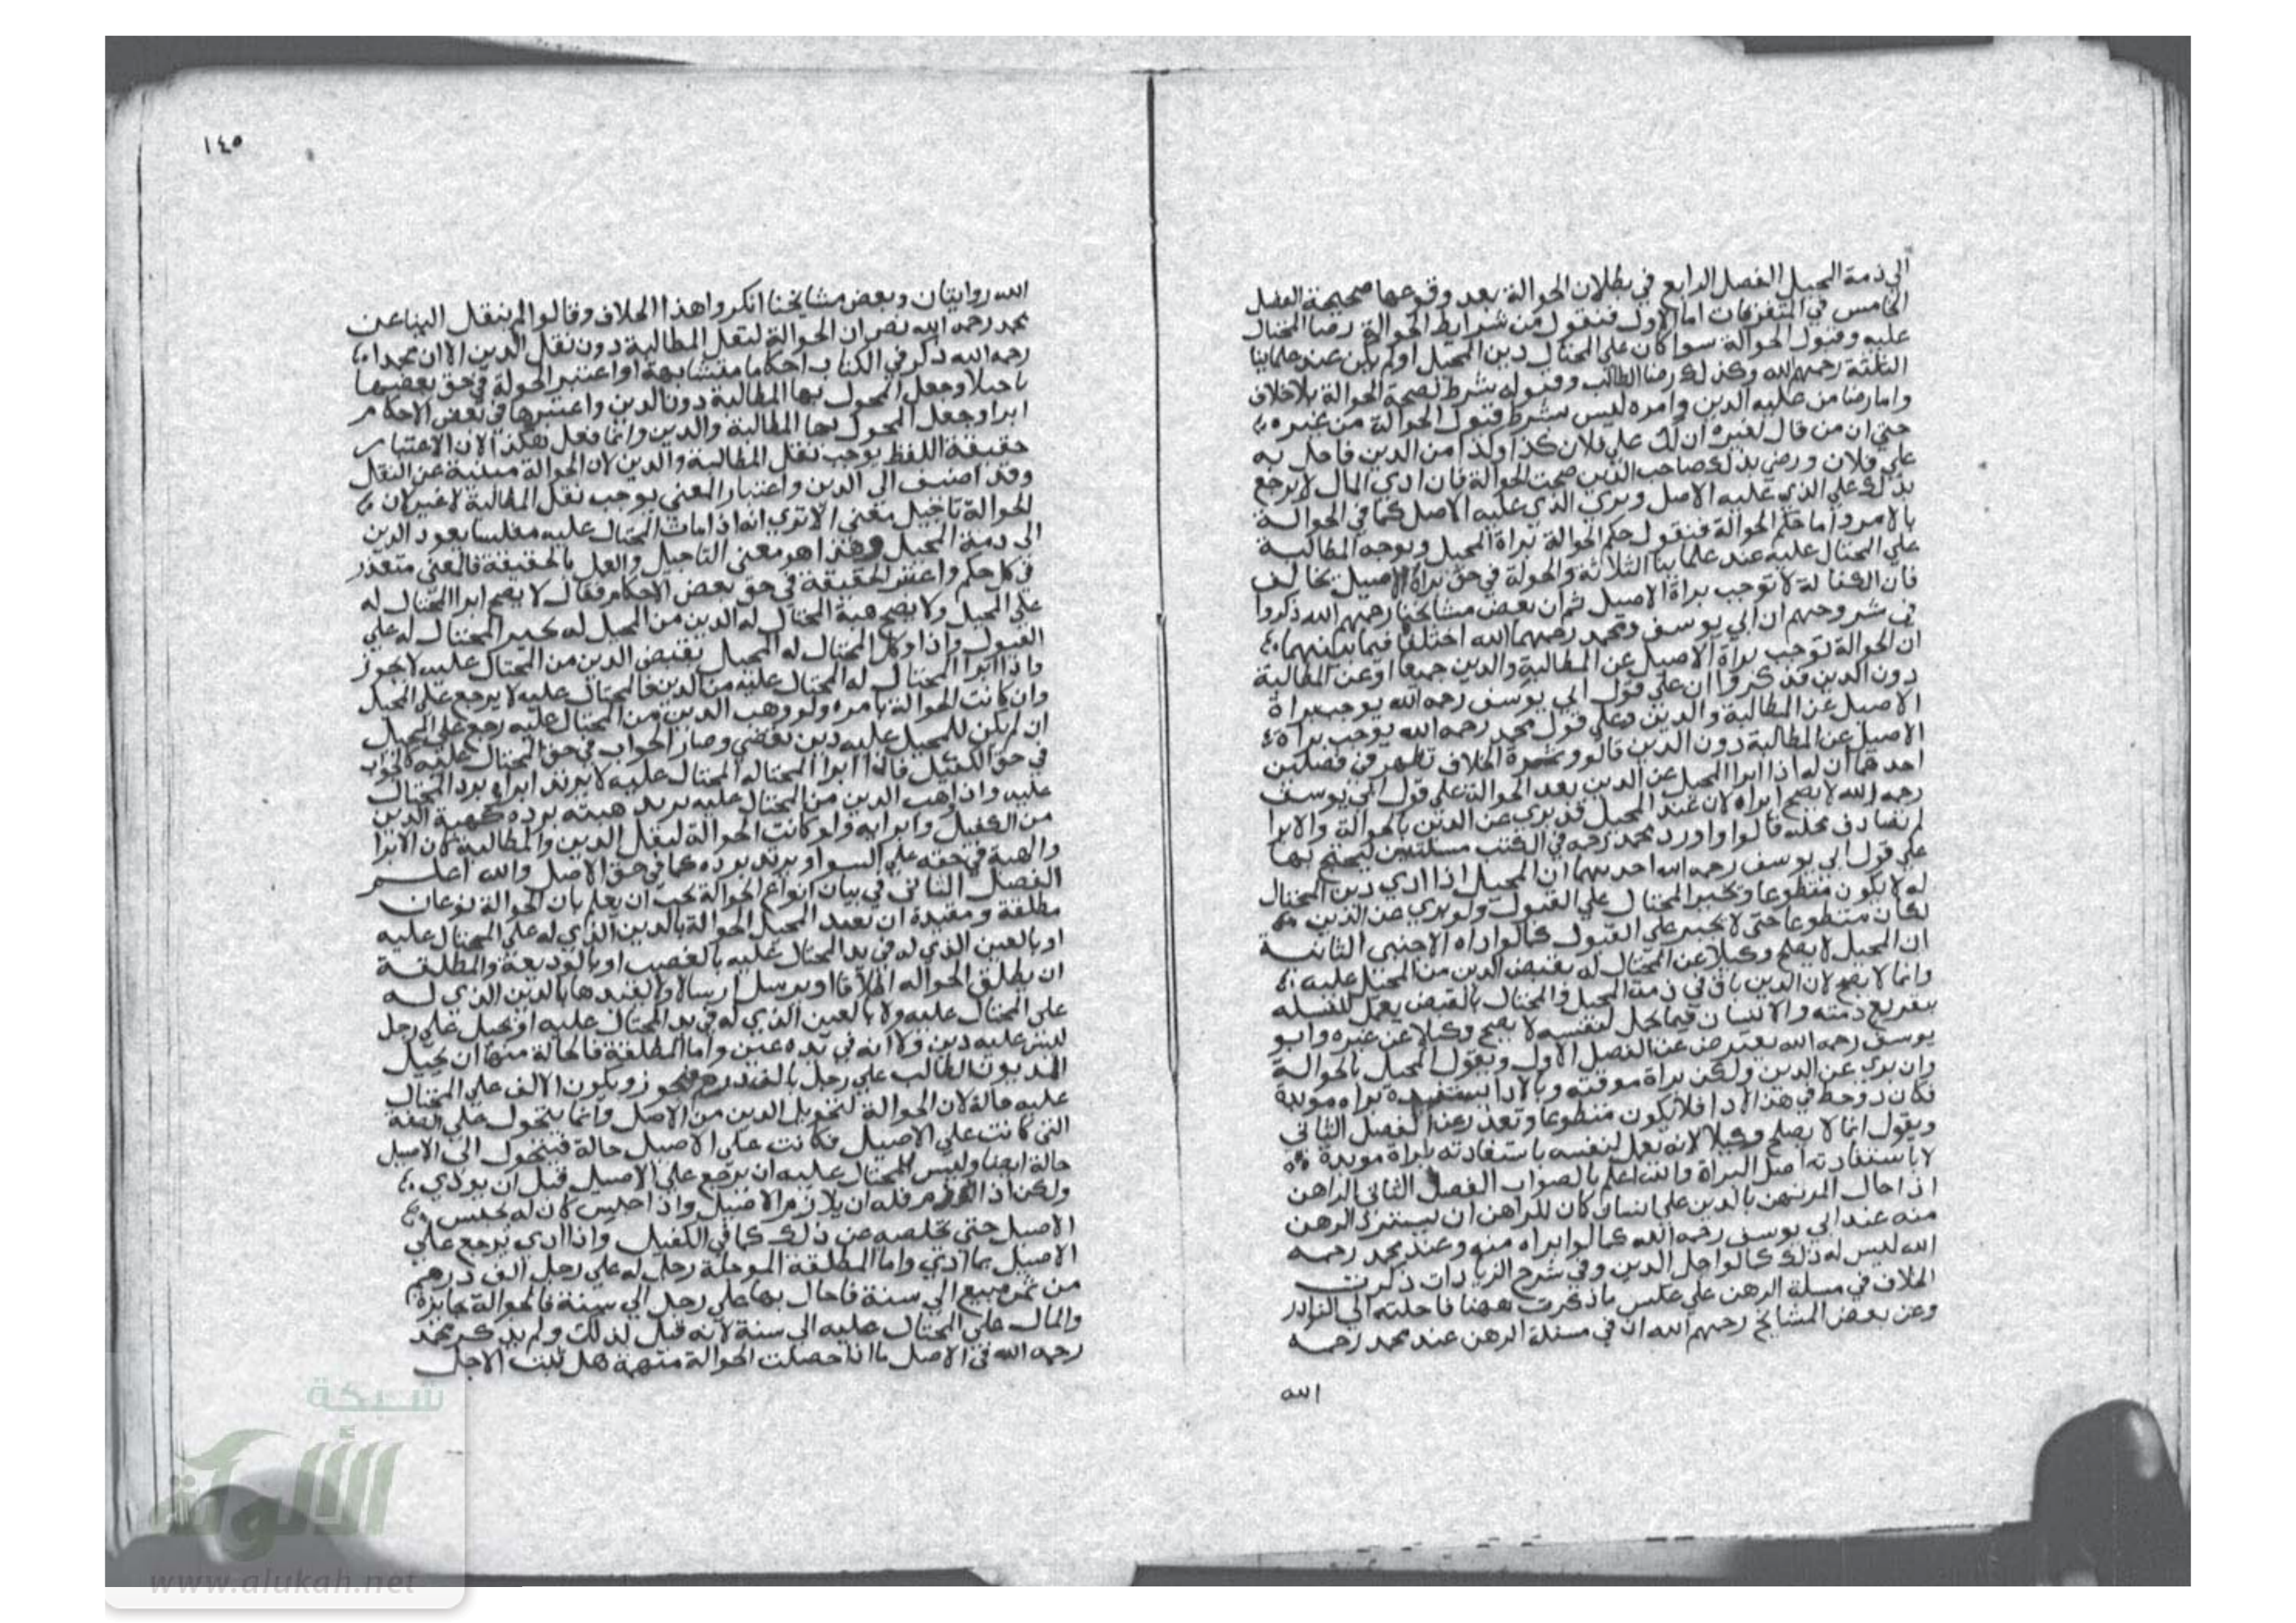 الي ذمة المحيل الفصل الرابع في بطلان الحوالة بعد وقوعها صحيحة الفصل
الخامس في المتفرقات اما الاول فنقول من شرايط الحوالة رضا المحتال
عليه وقبول الحوالة سوا كان علي المحتال دين المحيل اولم يكن عند علماينا
الثلثة رحمهم الله وكذلك رضا الطالب وقبوله بشرط لصحة الحوالة بلا خلاف
واما رضا من عليه الدين وامره ليس بشرط قبول الحوالة من غيره
حتي ان من قال لغيره ان لك علي فلان كذا وكذا من الدين فاحل به
علي فلان ورضي بذلك صاحب الدين صحت الحوالة فان ادي المال لا يرجع
بذلك علي الذي عليه الاصل وبري الذي عليه الاصل كما في الحوالة
بالامر واما حكم الحوالة فنقول حكم الحوالة براة المحيل وتوجه المطالبة
علي المحتال عليه عند علماينا الثلاثة والحولة في حق براة الاصيل تخالف
فان الكفالة لا توجب براة الاصيل ثم ان بعض مشايخنا رحمهم الله ذكروا
في شروحهم ان ابي يوسف ومحمد رحمهما الله اختلفا فيما بينهما
ان الحوالة توجب براة الاصيل عن المطالبة والدين جميعا اوعن المطالبة
دون الدين فذكروا ان علي قول ابي يوسف رحمه الله يوجب براة
الاصيل عن المطالبة والدين وعلي قول محمد رحمه الله يوجب براة
الاصيل عن المطالبة دون الدين قالو وثمرة الخلاف تظهر في فصلين
احدهما ان له اذا ابرا المحيل عن الدين بعد الحوالة علي قول ابي يوسف
رحمه الله لا يصح ابراه لان عند المحيل قد بري عن الدين بالحوالة والابرا
لم تصادف محله قالوا واورد محمد رحمه في الكتب مسئلتين ليحتج بها
علي قول ابي يوسف رحمه الله احديهما ان المحيل اذا ادي دين المحتال
له لا يكون متطوعا ويجبر المحتال علي القبول ولو بري عن الدين
لكان متطوعا حتي لا يجبر علي القبول كما لو اداه الاجنبي الثانية
ان المحيل لا يصلح وكيلا عن المحتال له بقبض الدين من المحتل عليه
وانما لا يصح لان الدين باق في ذمة المحيل والمحتال بالقبض يعمل لنفسه
بتفريع ذمته والانسان فيما يحل لنفسه لا يصح وكيلا عن غيره وابو
يوسف رحمه الله يعترض عن الفصل الاول ويقول المحيل بالحوالة
وان بري عن الدين ولكن براة موقتة وبالادا يستفيدة براه موبدة
فلا يكون متطوعا وتعذر عن الفصل الثاني
ويقول انما لا يصلح وكيلا لانه يعمل لنفسه باستفادته براة موبدة
لا باستفادته اصل البراة والله اعلم بالصواب الفصل الثاني الراهن
اذا حال المرتهن بالدين علي انسان كان للراهن ان يسترد الرهن
منه عند ابي يوسف رحمه الله كما لو ابراه منه وعند محمد رحمه
الله ليس له ذلك كما لو اجل الدين وفي شرح الزيادات ذكرت
الخلاف في مسلة الرهن علي عكس ما ذكرت ههنا فاحلته الي النوادر
وعن بعض المشايخ رحمهم الله ان في مسئلة الرهن عند محمد رحمه
الله
١٤٥
الله روايتان وبعض مشايخنا انكروا هذا الخلاف وقالوا لم ينقل الينا عن
محمد رحمه الله نص ان الحوالة لنقل المطالبة دون نقل الدين الا ان محمدا
رحمه الله ذكر في الكتاب احكاما متشابهة او اعتبر الحولة في حق بعضها
تاجيلا وجعل المحول بها المطالبة دون الدين واعتبرها في بعض الاحكام
ابرا وجعل المحول بها المطالبة والدين وانما فعل هكذا لان الاعتبار
حقيقة اللفظ يوجب نقل المطالبة والدين لان الحوالة مبنية عن النقل
وقد اضيف الي الدين واعتبار المعني يوجب نقل المطالبة لا غير لان
الحوالة تاجيل معني الا تري انه اذا مات المحتال عليه مفلسا يعود الدين
الي ذمة المحيل وهذا هو معني التاجيل والعمل بالحقيقة فالمعني متعذر
في كل حكم واعتبر الحقيقة في حق بعض الاحكام فقال لا يصح ابرا المحتال له
علي المحيل ولا يصح هبة المحتال له الدين من المحيل له يجبر المحتال له علي
القبول واذا وكل المحتال له المحيل بقبض الدين من المحتال عليه لا يجوز
واذا ابرا المحتال له المحتال عليه من الدين فالمحتال عليه لا يرجع علي المحيل
وان كانت الحوالة بامره ولو وهب الدين من المحتال عليه رجع علي المحيل
ان لم يكن للمحيل عليه دين بعضي وصار الجواب في حق المحتال عليه كالجواب
في حق الكفيل فاذا ابرا المحتاله المحتال عليه لا يرتد ابراه برد المحتال
عليه واذا وهب الدين من المحتال عليه يرتد هبته برده كهبة الدين
من الكفيل وابرايه ولو كانت الحوالة لنقل الدين والمطالبة كان الابرا
والهبة في حقه علي السوا ويرتد برده كما في حق الاصل والله اعلم
الفصل الثاني في بيان انواع الحوالة يجب ان يعلم بان الحوالة نوعان
مطلقة ومقيدة ان يقيد المحيل الحوالة بالدين الذي له علي المحتال عليه
او بالعين الذي له في يد المحتال عليه بالغصب او بالوديعة والمطلقة
ان يطلق الحواله اطلاقا او يرسل ارسالا ولا يقيدها بالدين الذي له
علي المحتال عليه ولا بالعين الذي له في يد المحتال عليه او يحيل علي رجل
ليس عليه دين ولا انه في يده عين واما المطلقة فالحالة منها ان يحيل
المديون الطالب علي رجل بالف درهم فيجوز ويكون الالف علي المحتال
عليه حالة لان الحوالة لتحويل الدين من الاصل وانما يتحول علي الصفة
التي كانت علي الاصيل فكانت علي الاصيل حالة فيتحول الي الاصيل
حالة ايضا وليس للمحتال عليه ان يرجع علي الاصيل قبل ان يودي
ولكن اذا لوزم فله ان يلازم الاصيل واذا احبس كان له يحبس
الاصيل حتي يخلصه عن ذلك كما في الكفيل واذا ادي يرجع علي
الاصيل بما ادي واما المطلقة الموجلة رجل له علي رجل الف درهم
من ثمن مبيع الي سنة فاحال بها علي رجل الي سنة فالحوالة جايزة
والمال علي المحتال عليه الي سنة لانه قبل لذلك ولم يذكر محمد
رحمه الله في الاصل ما اذا حصلت الحوالة منهمة هل يثبت الاجل
شبكة
الألوكة
www.alukah.net